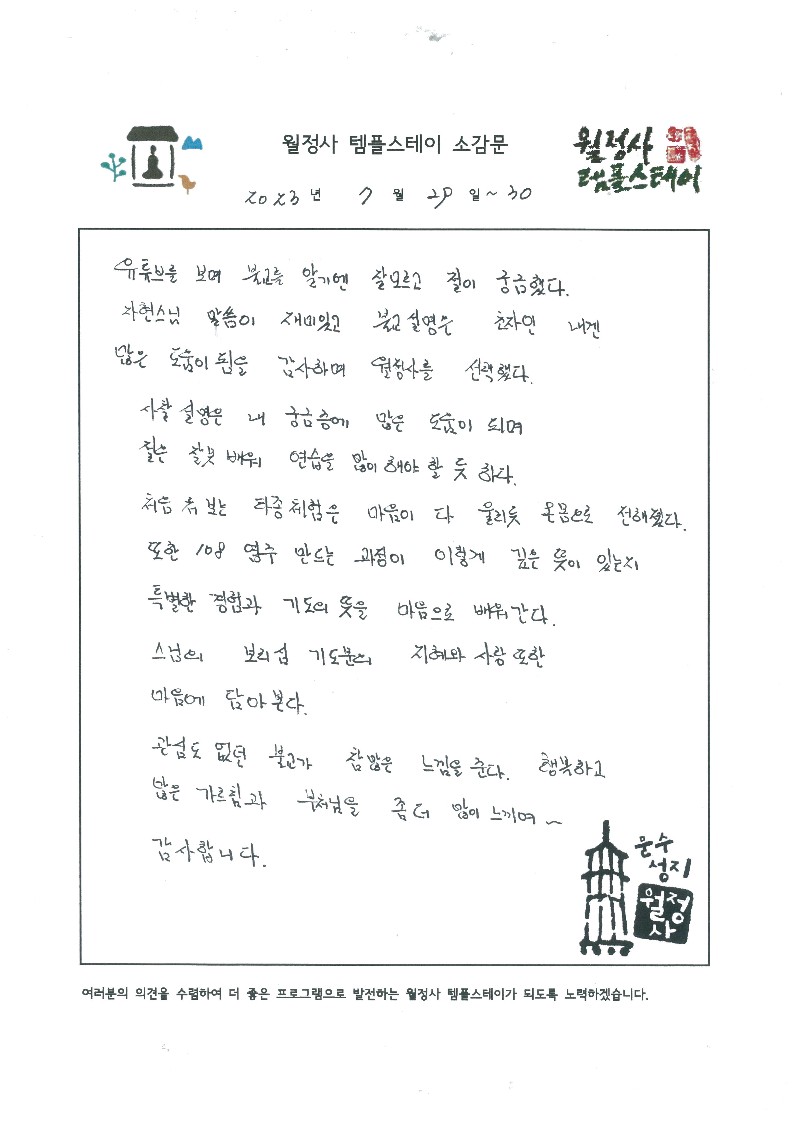 월정사 템플스테이 소감문
월정사
템플스테이
2023년 7월 29일~30
유튜브를 보며 불교를 알기엔 잘모르고 절이 궁금했다.
자현스님 말씀이 재미있고 불교설명은 초자인 내겐
많은 도움이 됨을 감사하며 월정사를 선택했다.
사찰 설명은 내 궁금증에 많은 도움이 되며
절은 잘못 배워 연습을 많이 해야 할 듯 하다.
처음 쳐 보는 타종체험은 마음이 다 울리듯 온몸으로 전해졌다.
또한 108 염주 만드는 과정이 이렇게 깊은 뜻이 있는지
특별한 경험과 기도의 뜻을 마음으로 배워간다.
스님의 보리심 기도분의 지혜와 사랑 또한
마음에 담아본다.
관심도 없던 불교가 참 많은 느낌을 준다. 행복하고
많은 가르침과 부처님을 좀더 많이 느끼며~
감사합니다.
문수
성지
월정
사
여러분의 의견을 수렴하여 더 좋은 프로그램으로 발전하는 월정사 템플스테이가 되도록 노력하겠습니다.